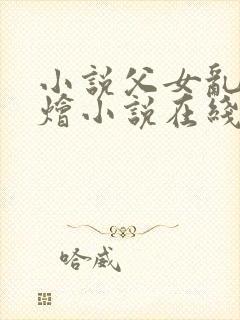 小説父女亂
燴小説在綫
哈威